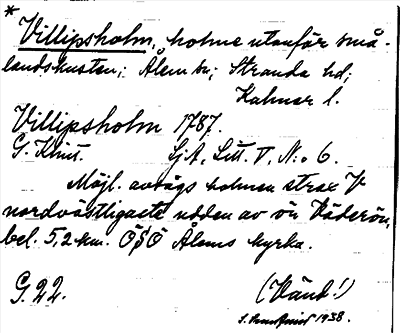 *
Villipsholm, holme utanför små-
landskusten; Ålem sn; Stranda hd;
Kalmar l.
Villipsholm 1787.
G. Khut. SjA, Litt. V, N:o 6.
Möjl. avsågs holmen strax V
nordvästligaste udden av ön Väderön,
bel. 5,2 km. ÖSÖ Ålems kyrka.
G. 22. (Vänd!)
1938.